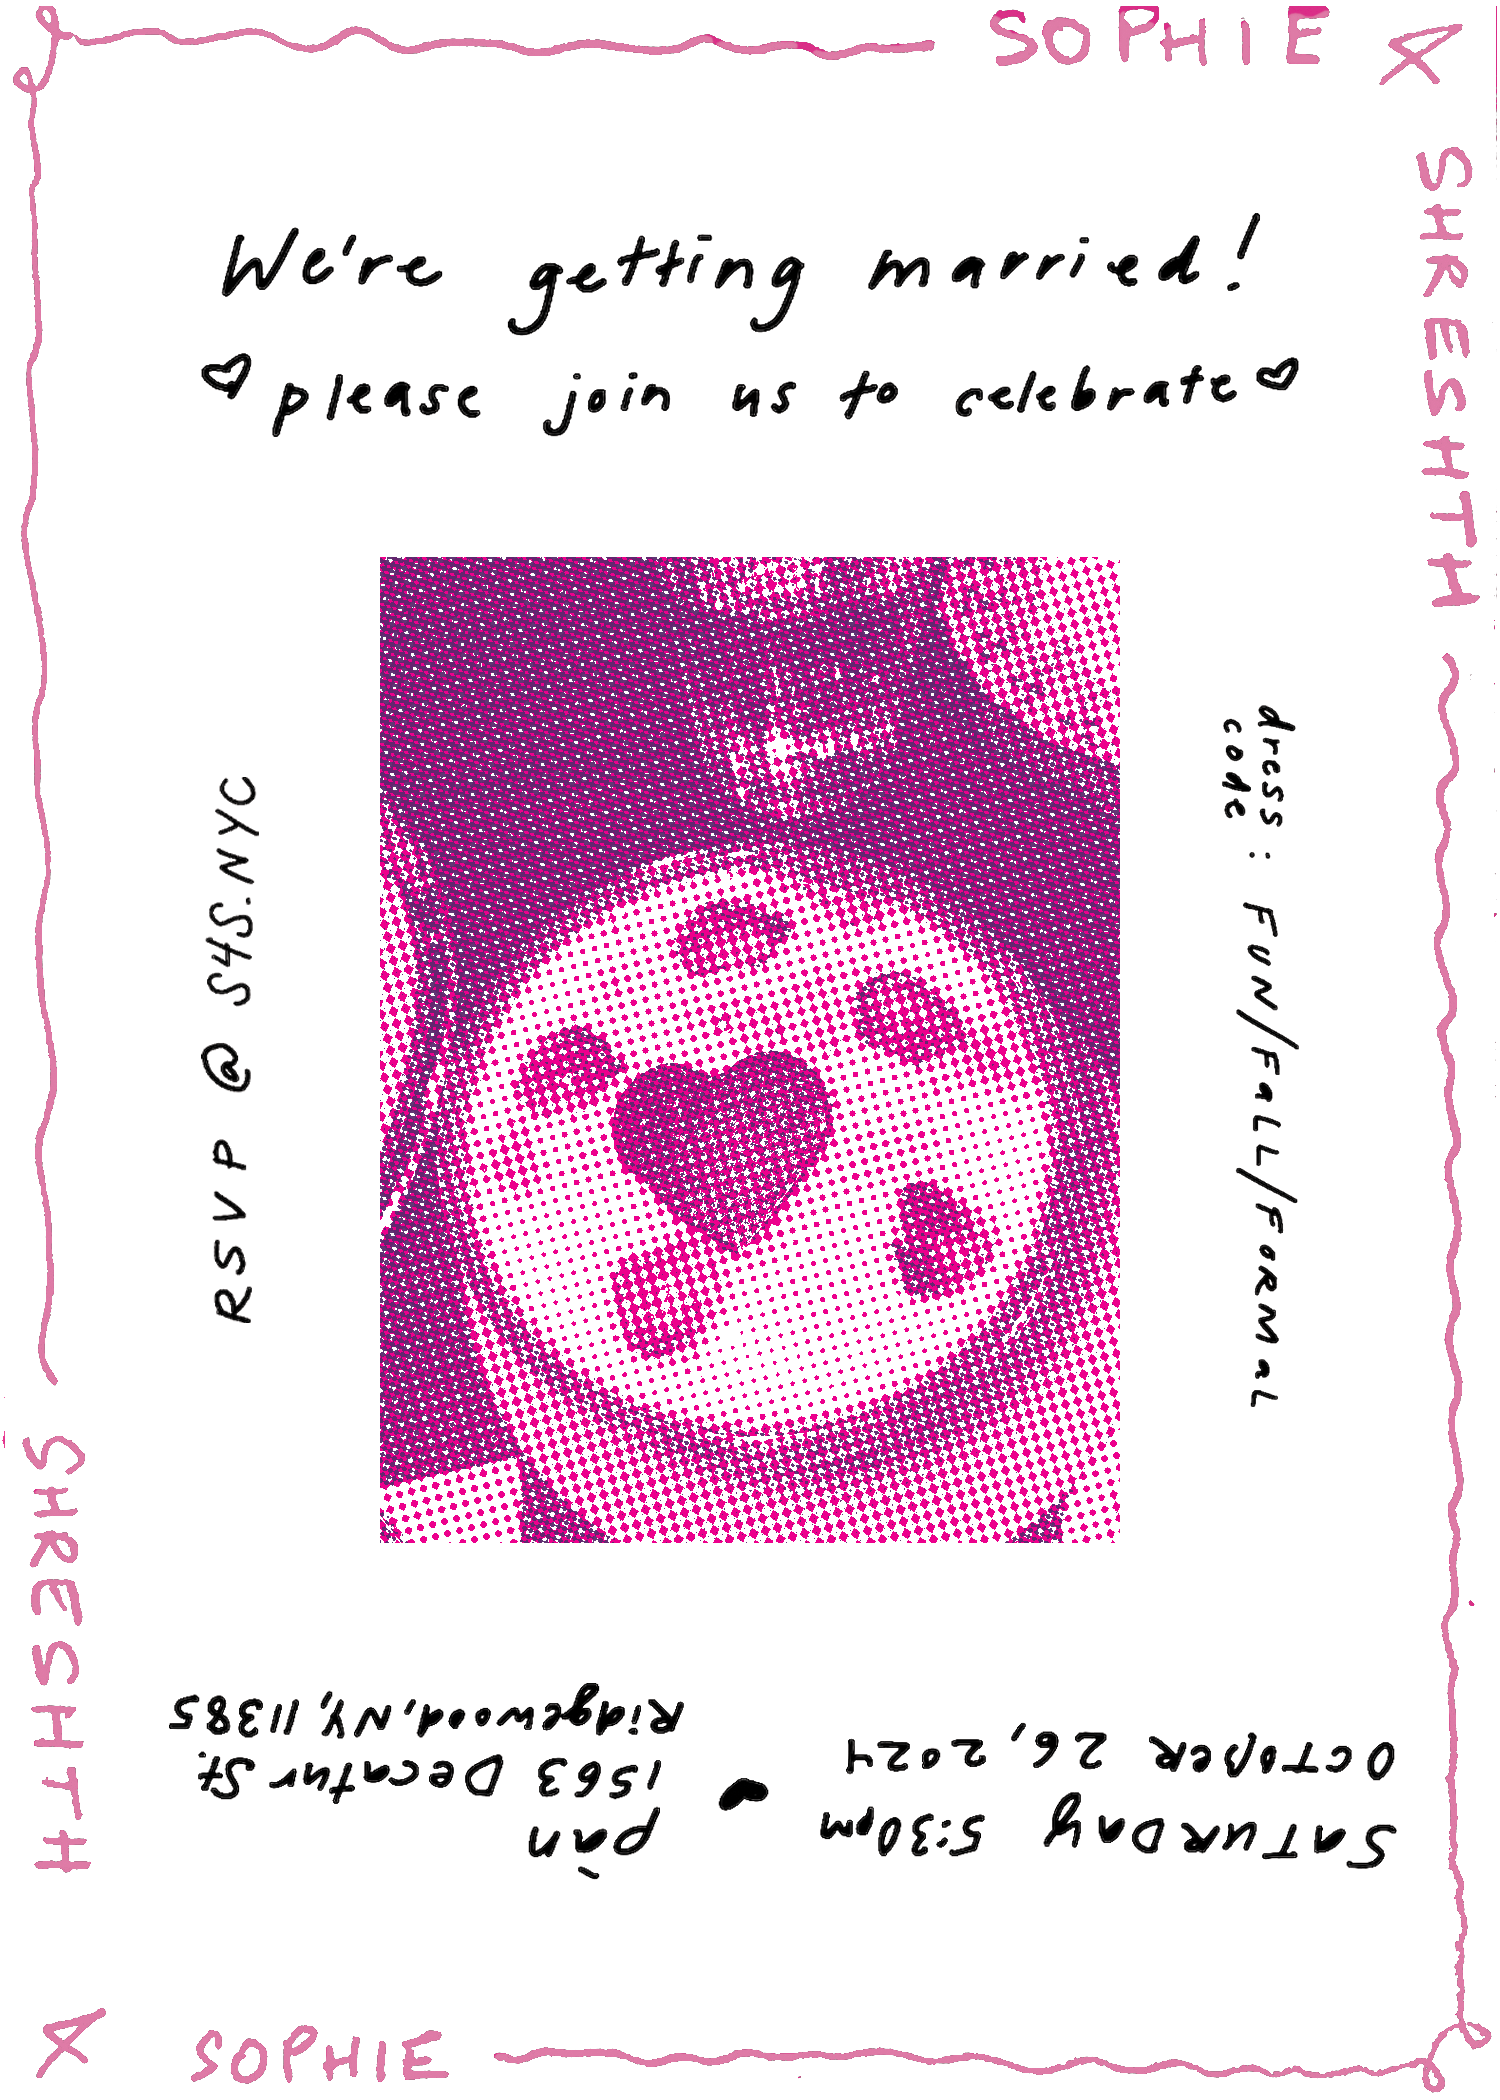 SOPHIE &
SHRESHTH
We're getting married!
♡ please join us to celebrate ♡
dress code: FUN/FALL/FORMAL
SATURDAY 5:30pm
OCTOBER 26, 2024
pàn
1563 Decatur St.
Ridgewood, NY, 11385
RSVP @ S4S.NYC
SHRESHTH
& SOPHIE